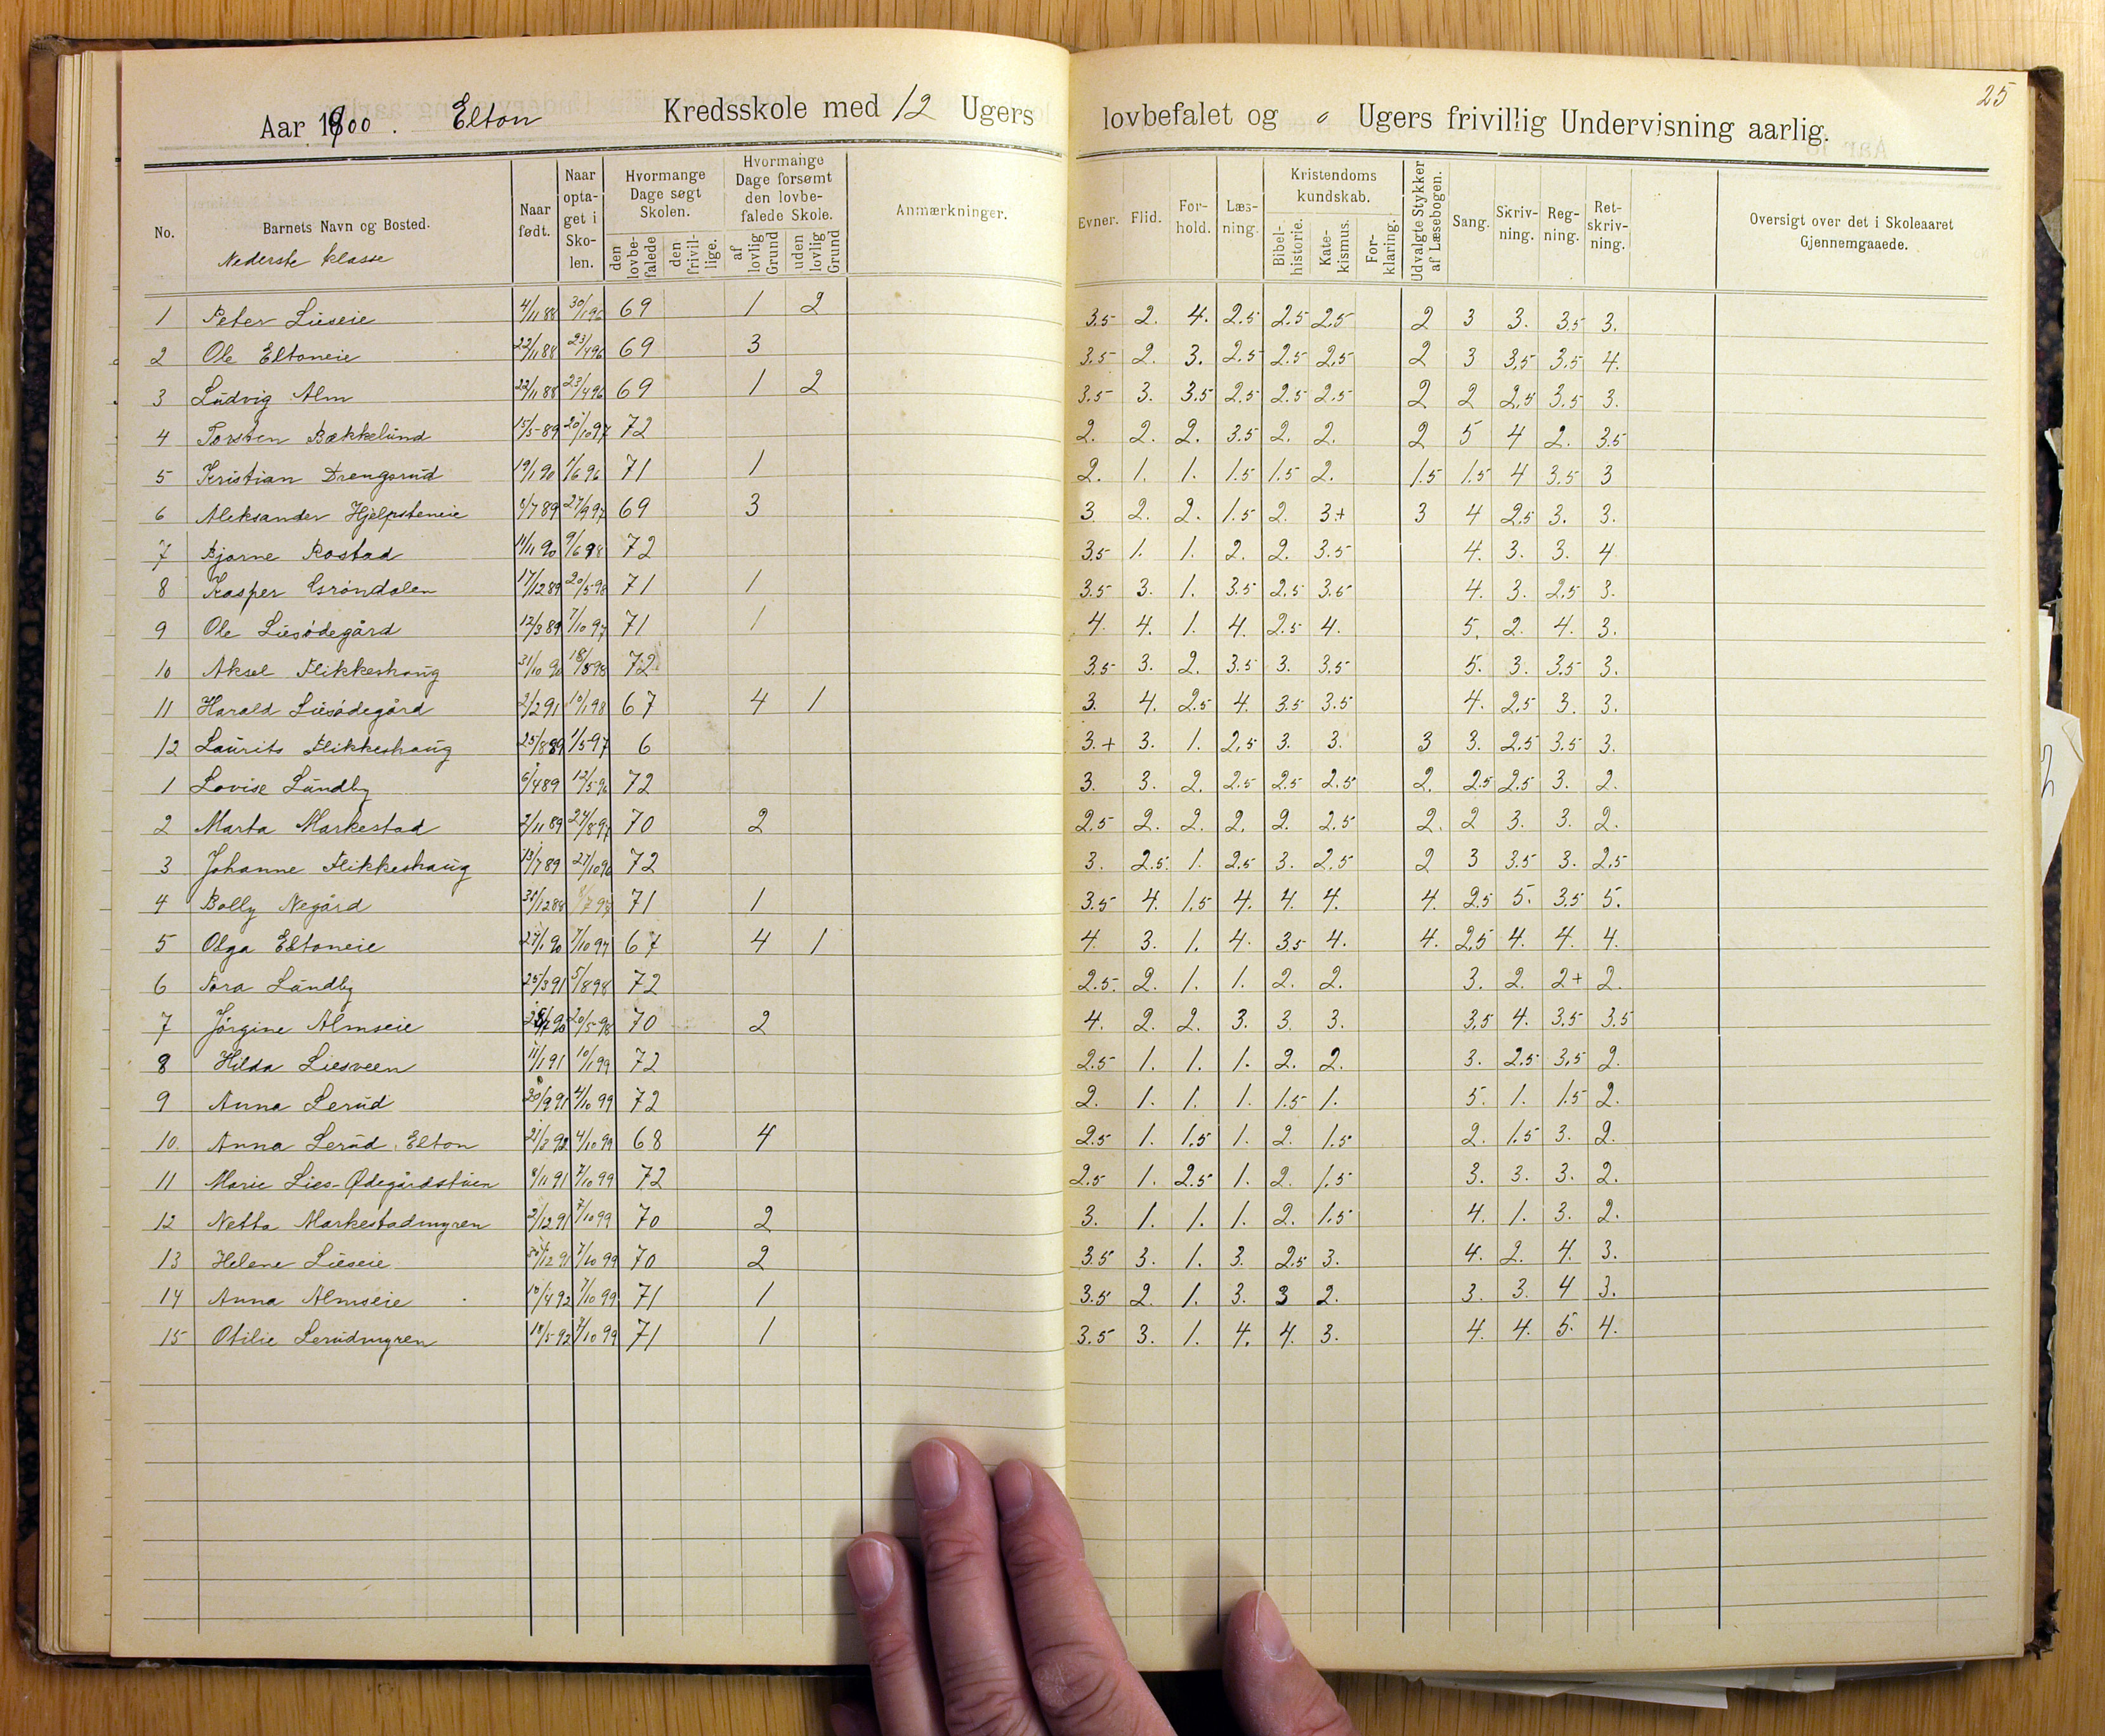 25
Aar 1900. Elton Kredsskole med 12 Ugers lovbefalet og 0 Ugers frivillig Undervisning aarlig.
No. Barnets Navn og Bosted. Naar født. Naar optaget i Skolen. Hvormange Dage søgt Skolen. den lovbefalede den frivillige. Hvormange Dage forsømt den lovbefalede Skole. af lovlig Grund uden lovlig Grund Anmærkninger. Evner. Flid. Forhold. Læsning. Kristendomskundskab. Bibelhistorie. Katekismus. Forklaring. Udvalgte Stykker af Læsebogen. Sang. Skrivning. Regning. Retskrivning. Oversigt over det i Skoleaaret Gjennemgaaede.
Nederste klasse
1 Peter Lieseie 4/11 88 30/1 96 69 1 2 3.5 2. 4. 2.5 2.5 2.5 2 3 3. 3.5 3.
2 Ole Eltoneie 22/11 88 23/4 96 69 3 3.5 2. 3. 2.5 2.5 2.5 2 3 3.5 3.5 4.
3 Ludvig Alm 22/11 88 23/4 96 69 1 2 3.5 3. 3.5 2.5 2.5 2.5 2 2 2.5 3.5 3.
4 Torsten Bækkelund 15/5 89 20/10 97 72 2. 2. 2. 3.5 2. 2. 2 5 4 2. 3.5
5 Kristian Drengsrud 19/1 90 1/6 96 71 1 2. 1. 1. 1.5 1.5 2. 1.5 1.5 4 3.5 3
6 Aleksander Hjelpsteneie 5/7 89 27/9 97 69 3 3. 2. 2. 1.5 2. 3+ 3 4 2.5 3. 3.
7 Bjarne Rostad 11/11 90 9/6 98 72 3.5 1. 1. 2. 2. 3.5 4. 3. 3. 4
8 Kasper Grøndalen 17/12 89 20/5 98 71 1 3.5 3. 1. 3.5 2.5 3.5 4. 3. 2.5 3.
9 Ole Liesødegård 12/3 89 7/10 97 71 1 4. 4. 1. 4. 2.5 4. 5. 2. 4. 3.
10 Aksel Flikkeshaug 31/10 90 18/8 98 72 3.5 3. 2. 3.5 3. 3.5 5. 3. 3.5 3.
11 Harald Liesødegård 2/2 91 10/1 98 67 4 1 3. 4. 2.5 4. 3.5 3.5 4. 2.5 3. 3.
12 Laurits Flikkeshaug 25/8 89 1/5 97 6 3.+ 3. 1. 2.5 3. 3. 3 3. 2.5 3.5 3.
1 Lovise Lundby 6/4 89 12/5 96 72 3. 3. 2. 2.5 2.5 2.5 2. 2.5 2.5 3. 2.
2 Marta Markestad 2/11 89 24/8 97 70 2 2.5 2. 2. 2. 2. 2.5 2. 2 3. 3. 2.
3 Johanne Flikkeshaug 13/7 89 27/10 96 72 3. 2.5 1. 2.5 3. 2.5 2 3 3.5 3. 2.5
4 Bolly Negård 30/12 88 71 1 3.5 4. 1.5 4. 4. 4. 4. 2.5 5. 3.5 5.
5 Olga Eltoneie 27/1 90 7/10 97 67 4 1 4. 3. 1. 4. 3.5 4. 4. 2.5 4. 4. 4.
6 Tora Lundby 25/3 91 5/8 98 72 2.5 2. 1. 1. 2. 2. 3. 2. 2+ 2.
7 Jørgine Almseie 20/5 98 70 2 4. 2. 2. 3. 3. 3. 3.5 4. 3.5 3.5
8 Hilda Liesveen 11/1 91 10/1 99 72 2.5 1. 1. 1. 2. 2. 3. 2.5 3.5 2.
9 Anna Lerud 20/9 91 4/10 99 72 2. 1. 1. 1. 1.5 1. 5. 1. 1.5 2.
10. Anna Lerud, Elton 21/2 92 4/10 99 68 4 2.5 1. 1.5 1. 2. 1.5 2. 1.5 3. 2.
11 Marie Lies-Ødegårdstuen 8/11 91 7/10 99 72 2.5 1. 2.5 1. 2. 1.5 3. 3. 3. 2.
12 Netta Markestadmyren 2/12 91 7/10 99 70 2 3. 1. 1. 1. 2. 1.5 4. 1. 3. 2.
13 Helene Lieseie 30/12 91 7/10 99 70 2 3.5 3. 1. 3. 2.5 3. 4. 2. 4. 3.
14 Anna Almseie 10/4 92 7/10 99 71 1 3.5 2. 1. 3. 3 2. 3. 3. 4 3.
15 Otilie Lerudmyren 18/5 92 7/10 99 71 1 3.5 3. 1. 4. 4. 3. 4. 4. 5. 4.